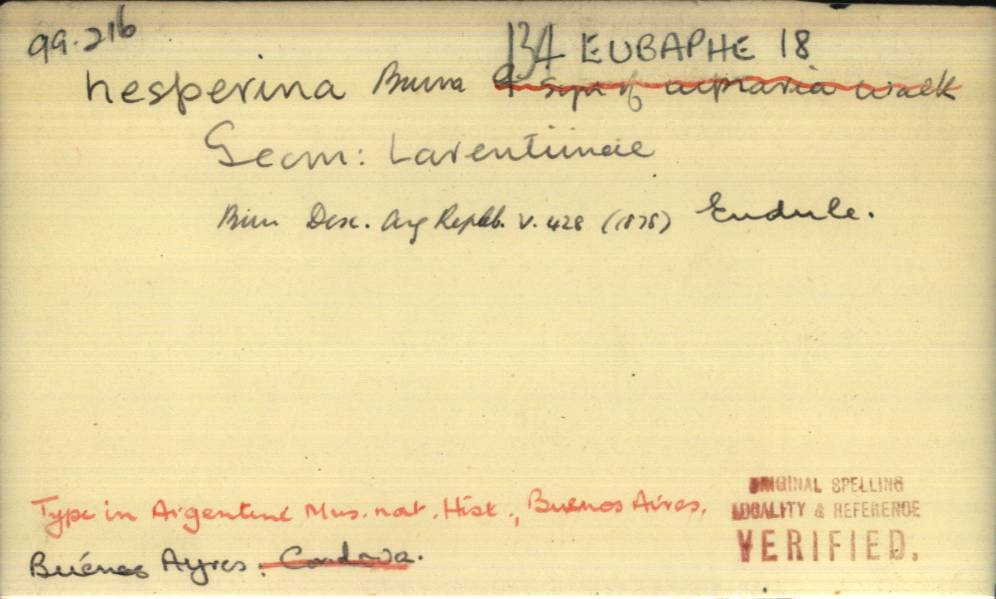 99.216
134 EUBAPHE 18
hesperina Burm
Geom: Larentiinae
Burm Desc. Arg Repub. V. 428 (1878) Eudule.
Type in Argentine Mus. nat. Hist., Buenos Aires.
ORIGINAL SPELLING
LOCALITY & REFERENCE
VERIFIED.
Buénos Ayres. Cordova.